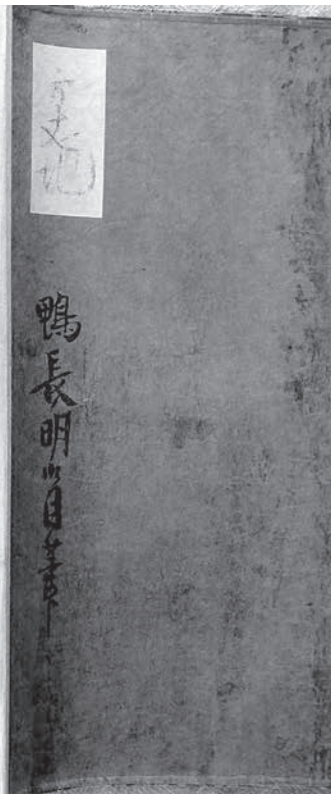 方丈記
鴨長明自筆